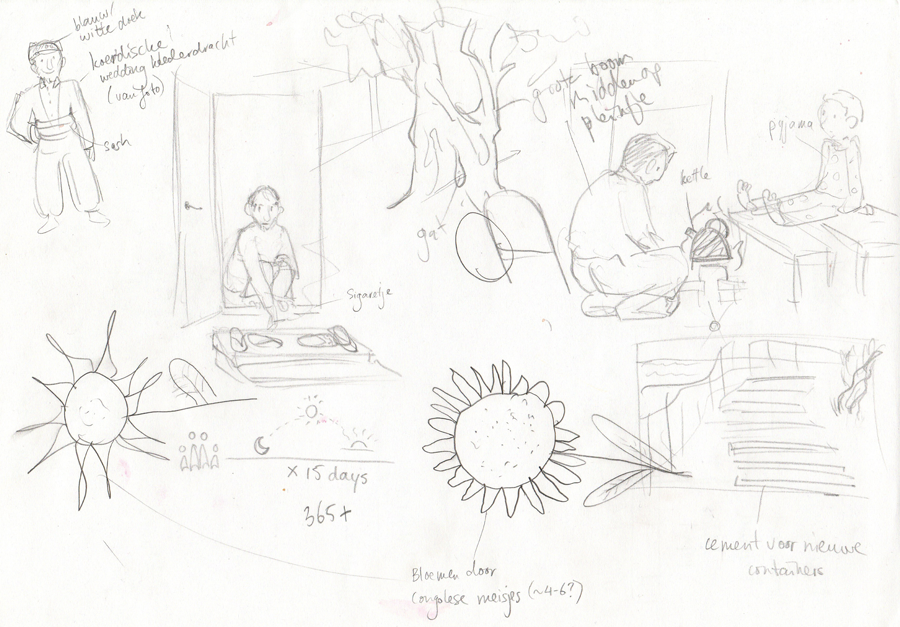 blauw/
witte doek
koerdische
wedding klederdracht
(van foto)
sash
groot boom
midden op
pleintje
gat
Sigaretje
kettle
pyjama
x 15 days
365+
Bloemen door
Congolese meisjes (~4-6?)
cement voor nieuwe
containers